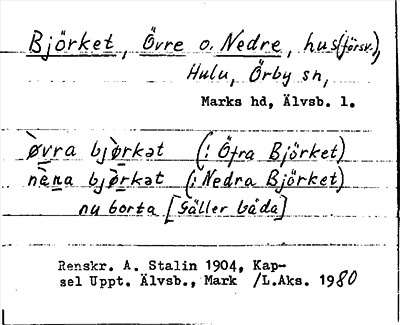 Björket, Övre o. Nedre, hus(försv.),
Hulu, Örby sn,
Marks hd, Älvsb. l.
ø̀vra bjø̀rkət (: Öfra Björket)
nèna bjø̀rkət (: Nedra Björket)
nu borta [Gäller båda]
Renskr. A. Stalin 1904, Kap-
sel Uppt. Älvsb., Mark /L.Aks. 1980